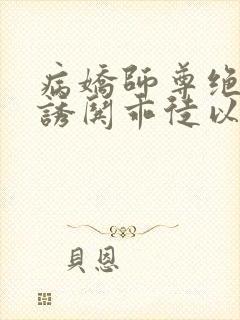 病嬌師尊绝
誘関乖徒以
貝恩